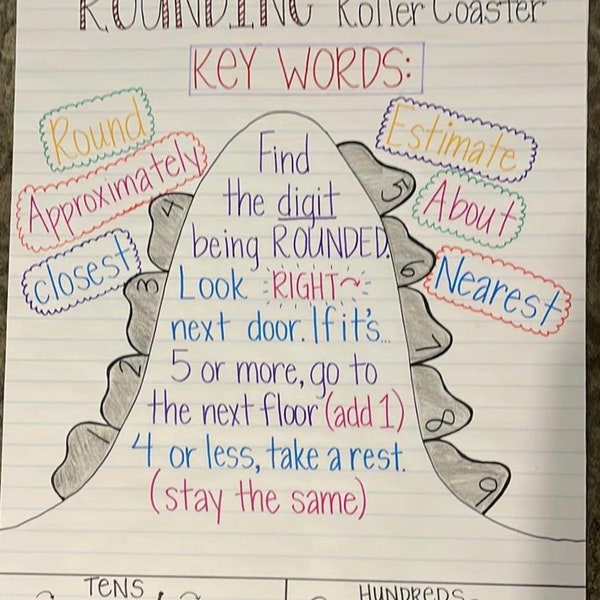 ROUNDING Roller Coaster
KEY WORDS:
Round
Approximately
closest
Estimate
About
Nearest
4
3
2
1
5
6
7
8
9
Find
the digit
being ROUNDED.
Look RIGHT~
next door. If it's...
5 or more, go to
the next floor (add 1)
4 or less, take a rest.
(stay the same)
TENS
HUNDREDS